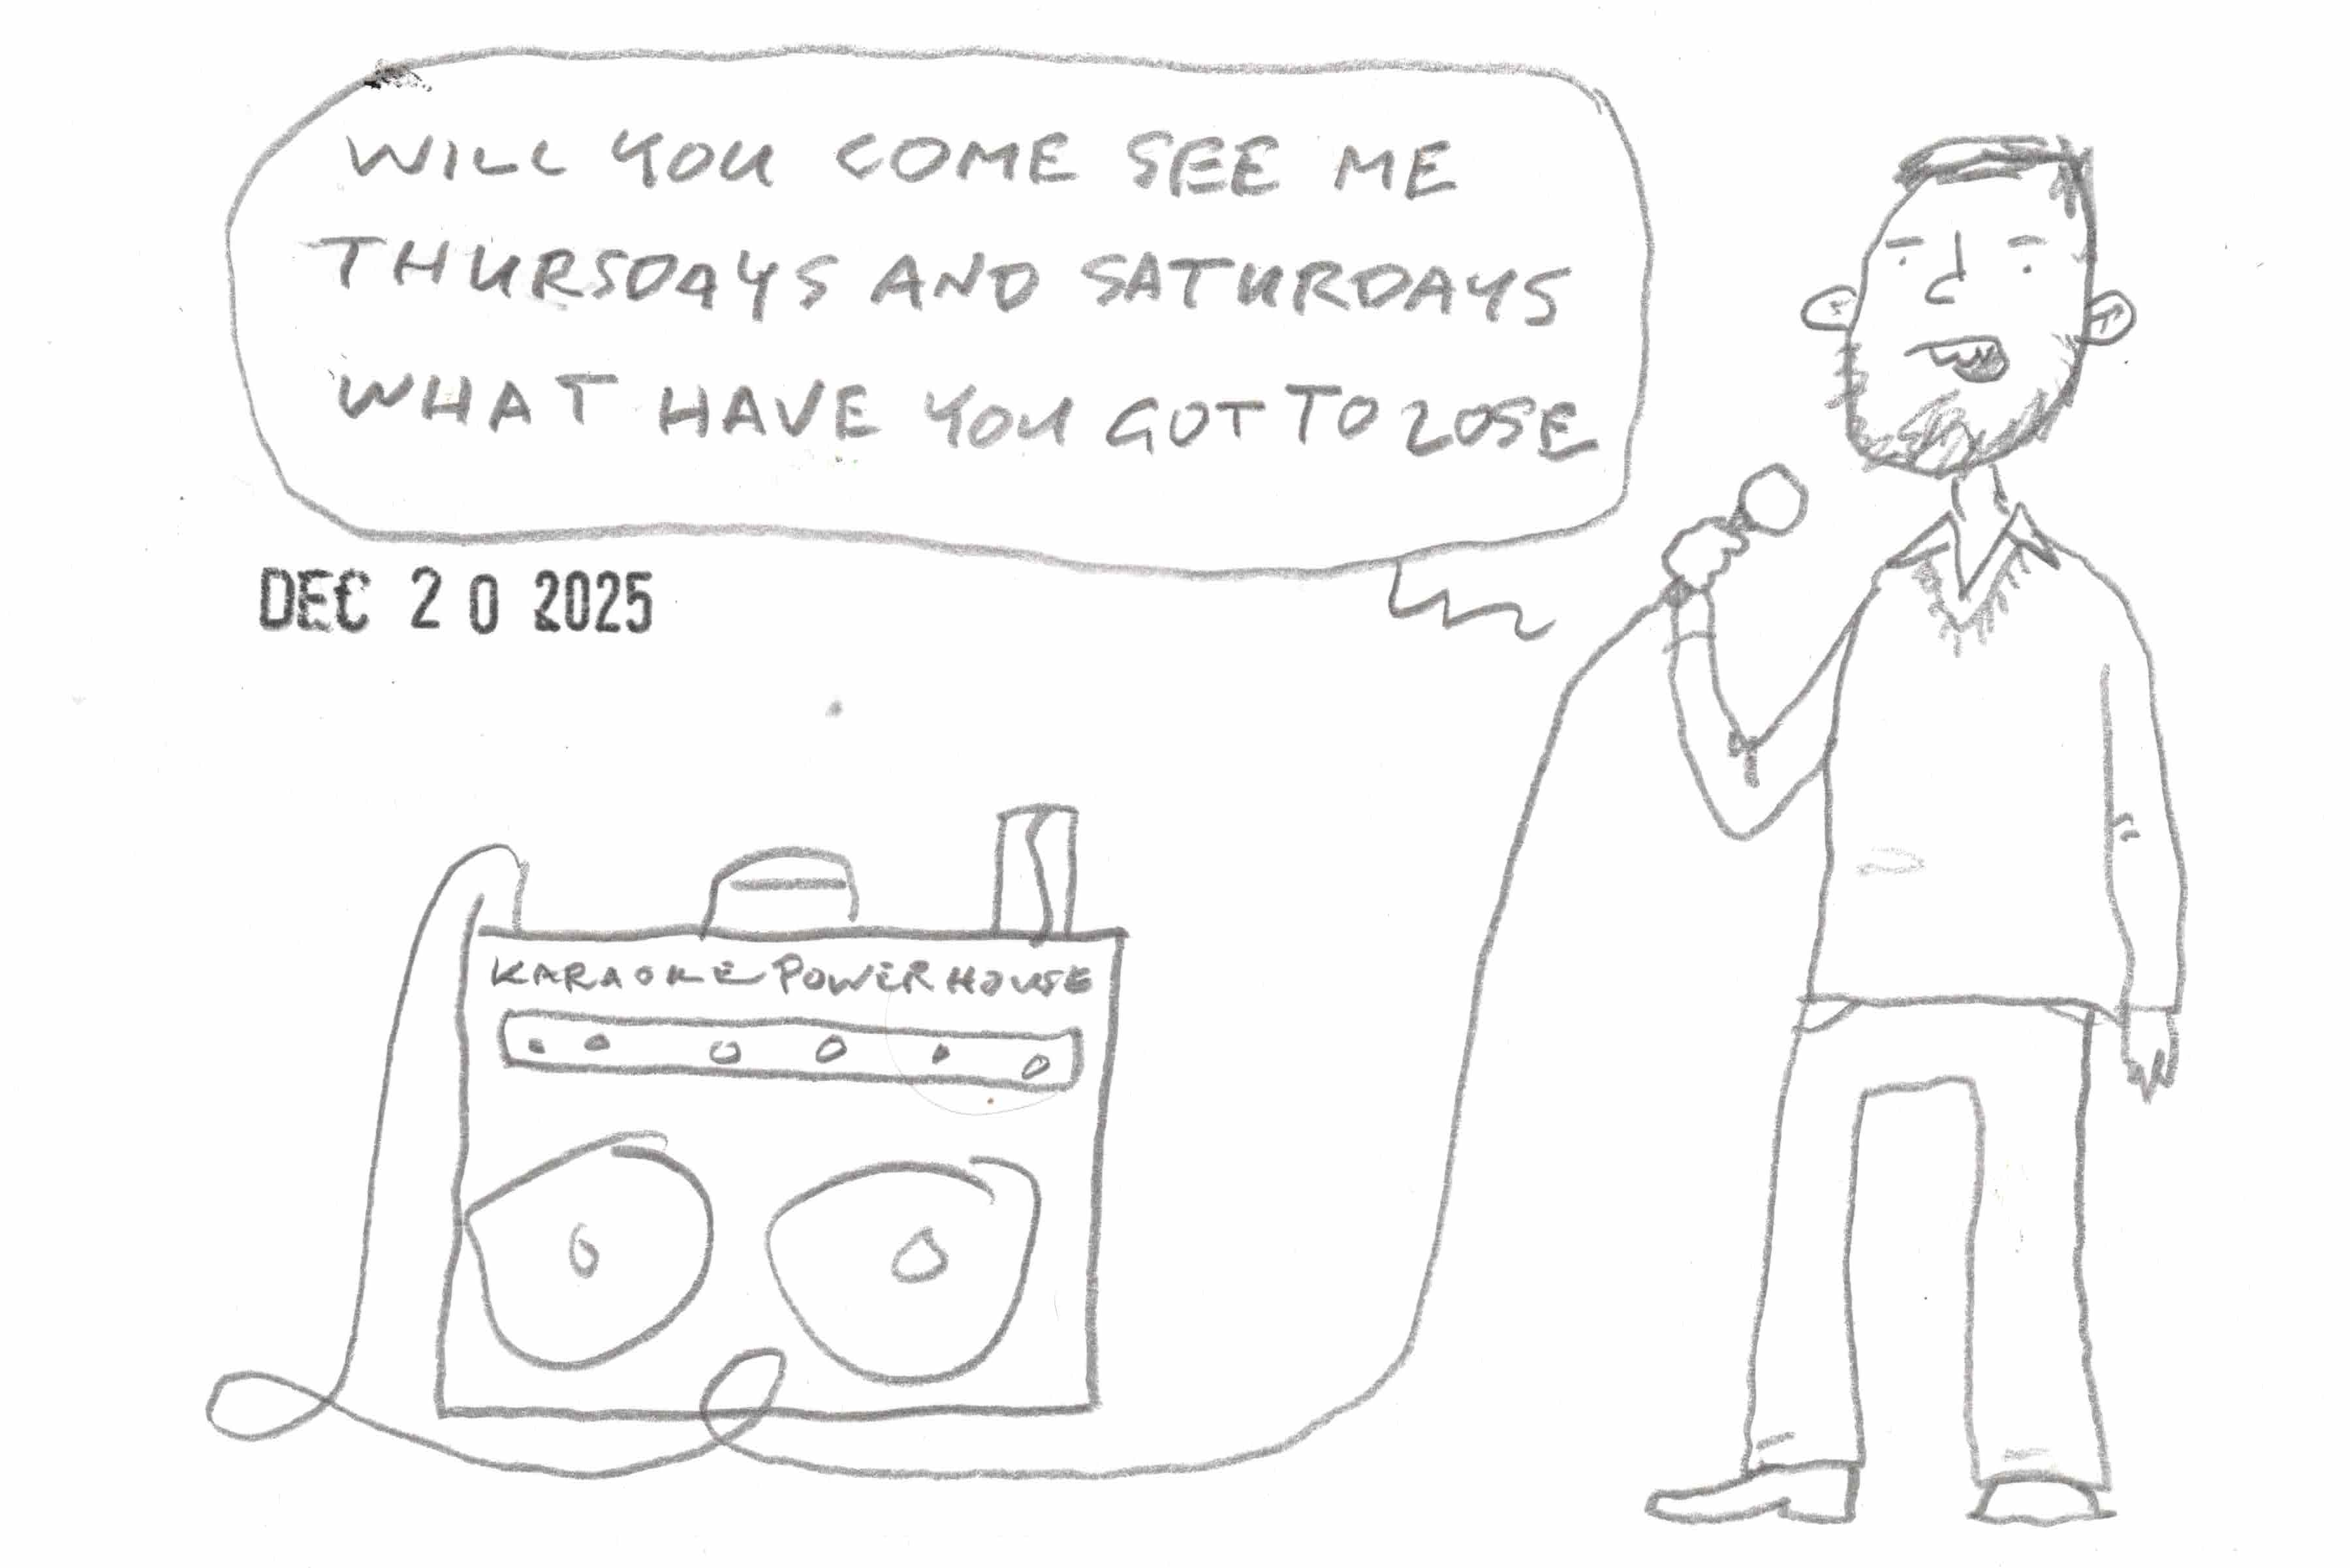 WILL YOU COME SEE ME
THURSDAYS AND SATURDAYS
WHAT HAVE YOU GOT TO LOSE
DEC 20 2025
KARAOKE POWER HOUSE